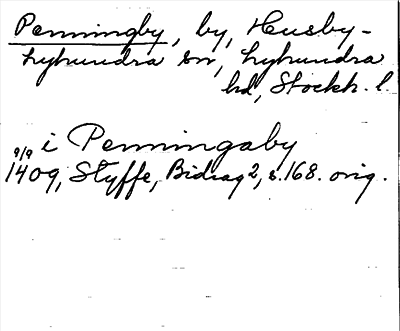 Penningby, by, Husby-
Lyhundra sn, Lyhundra
hd, Stockh. l.
i Penningaby
9/9
1409, Styffe, Bidrag 2, s. 168. orig.